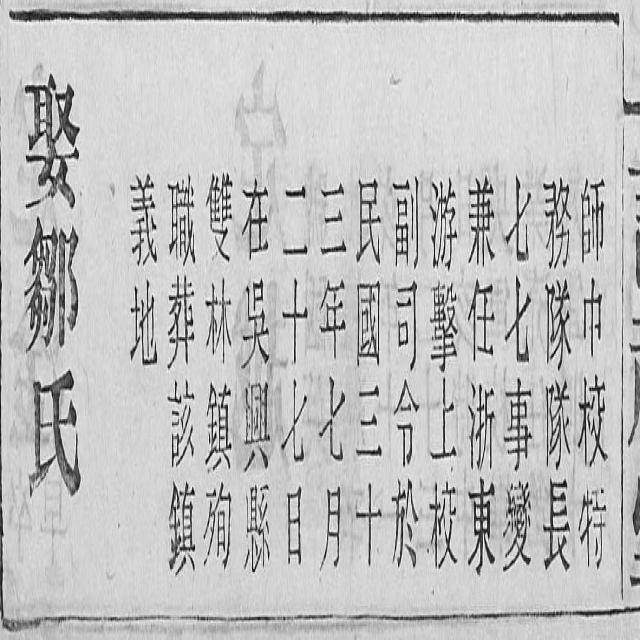 師中校特
務隊隊長
七七事變
兼任浙東
游擊上校
副司令於
民國三十
三年七月
二十七日
在吳興縣
雙林鎮殉
職葬該鎮
義地
娶鄒氏